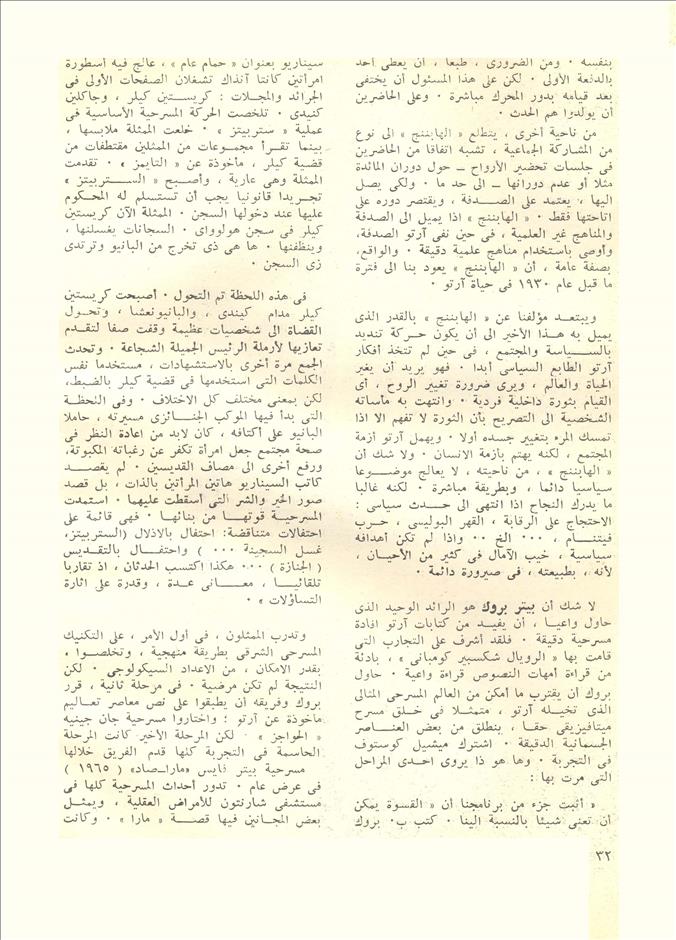 بنفسه ٠ ومن الضرورى ، طبعا ، أن يعطى أحد
بالدفعة الأولى ٠ لكن على هذا المسئول أن يختفى
بعد قيامه بدور المحرك مباشرة ٠ وعلى الحاضرين
أن يولدوا هم الحدث ٠
من ناحية أخرى ، يتطلع «الهابننج» الى نوع
من المشاركة الجماعية ، تشبه اتفاقا من الحاضرين
فى جلسات تحضير الأرواح ــ حول دوران المائدة
مثلا أو عدم دورانها ــ الى حد ما ٠ ولكى يصل
اليها ، يعتمد على الصــدفة ، ويقتصر دوره على
اتاحتها فقط ٠ «الهابننج» اذا يميل الى الصدفة
والمناهج غير العلمية ، فى حين نفى آرتو الصدفة،
وأوصى باستخدام مناهج علمية دقيقة ٠ والواقع،
بصفة عامة ، أن «الهابننج» يعود بنا الى فترة
ما قبل عام ١٩٣٠ فى حياة آرتو ٠
ويبتعــد مؤلفنا عن «الهابننج» بالقدر الذى
يميل به هــذا الأخير الى أن يكون حــركة تنديد
بالســياسة والمجتمع ، فى حين لم تتخذ أفكار
آرتو الطابع السياسى أبدا ٠ فهو يريد أن يغير
الحياة والعالم ، ويرى ضرورة تغيير الروح ، أى
القيام بثورة داخلية فردية ٠ وانتهت به مأساته
الشخصية الى التصريح بأن الثورة لا تفهم الا اذا
تمسك المرء بتغيير جسده أولا ٠ ويهمل آرتو أزمة
المجتمع ، لكنه يهتم بأزمة الانسان ٠ ولا شك أن
«الهابننج» ، من ناحيته ، لا يعالج موضــوعا
سياسيا دائما ، وبطريقة مباشرة ٠ لكنه غالبا
ما يدرك النجاح اذا انتهى الى حــدث سياسى :
الاحتجاج على الرقابة ، القهر البوليسى ، حــرب
فيتنــام ، ٠٠٠ الخ ٠٠ واذا لم تكن أهدافه
سياسية ، خيب الآمال فى كثير من الأحيــان ،
لأنه ، بطبيعته ، فى صيرورة دائمة ٠
لا شك أن بيتر بروك هو الرائد الوحيد الذى
حاول واعيــا ، أن يفيــد من كتابات آرتو افادة
مسرحية دقيقة ٠ فلقد أشرف على التجارب التى
قامت بها «الرويال شكسبير كومبانى» ، بادئة
من قراءة أمهات النصوص قراءة واعية ٠ حاول
بروك أن يقترب ما أمكن من العالم المسرحى المثالى
الذى تخيــله آرتو ، متمثــلا فى خــلق مسرح
ميتافيزيقى حقــا ، ينطلق من بعض العنــاصر
الجسمانية الدقيقة ٠ اشترك ميشيل كوستوف
فى التجربة ٠ وها هو ذا يروى احدى المراحل
التى مرت بها :
« أثبت جزء من برنامجنا أن «القسوة يمكن
أن تعنى شيئا بالنسبة الينا ٠ كتب ب٠ بروك
سيناريو بعنوان «حمام عام» ، عالج فيه أسطورة
امرأتين كانتا آنذاك تشغلان الصفحات الأولى فى
الجرائد والمجــلات : كريســتين كيلر ، وجاكلين
كنيدى ٠ تلخصت الحركة المسرحية الأساسية فى
عملية «ستربيتز» ٠ خلعت الممثلة ملابسها ،
بينما تقــرأ مجموعات من الممثلين مقتطفات من
قضية كيلر ، مأخوذة عن «التايمز» ٠ تقدمت
الممثلة وهى عارية ، وأصبح «الســتربيتز»
تجــريدا قانونيا يجب أن تستسلم له المحــكوم
عليها عند دخولها السجن ٠ الممثلة الآن كريستين
كيلر فى سجن هولوواى ٠ السجانات يغسلنها ،
وينظفنها ٠ ها هى ذى تخرج من البانيو وترتدى
زى السجن ٠
فى هذه اللحظة تم التحول ٠ أصبحت كريستين
كيلر مدام كيندى ، والبانيونعشا ، وتحــول
القضاة الى شخصيات عظيمة وقفت صفا لتقــدم
تعازيها لأرملة الرئيس الجميلة الشجاعة ٠ وتحدث
الجمع مرة أخرى بالاستشهادات ، مستخدما نفس
الكلمات التى استخدمها فى قضية كيلر بالضبط،
لكن بمعنى مختلف كل الاختلاف ٠ وفى اللحظــة
التى بدأ فيها الموكب الجنــائزى مسيرته ، حاملا
البانيو على أكتافه ، كان لابد من اعادة النظر فى
صحة مجتمع جعل امرأة تكفر عن رغباته المكبوتة،
ورفع أخرى الى مصاف القديسين ٠ لم يقصــد
كاتب السيناريو هاتين المرأتين بالذات ، بل قصد
صور الخير والشر التى أسقطت عليهما ٠ استمدت
المسرحيــة قوتهــا من بنائهــا ٠ فهى قائمة على
احتفالات متناقضة: احتفال بالاذلال (الستربيتز،
غسل السجينة ٠٠٠ ) واحتفــال بالتقــديس
( الجنازة ) ٠٠٠ هكذا اكتسب الحدثان ، اذ تقاربا
تلقائيــا ، معــانى عــدة ، وقدرة على اثارة
التساؤلات » ٠
وتدرب الممثلون ، فى أول الأمر ، على التكنيك
المسرحى الشرقى بطريقة منهجية ، وتخلصــوا ،
بقدر الامكان ، من الاعداد السيكولوجى ٠ لكن
النتيجة لم تكن مرضية ٠ فى مرحلة ثانية ، قرر
بروك وفريقه أن يطبقوا على نص معاصر تعــاليم
مأخوذة عن آرتو ؛ واختاروا مسرحية جان جينيه
« الحواجز » ٠ لكن المرحلة الأخير كانت المرحلة
الحاسمة فى التجربة كلها قدم الفريق خلالها
مسرحية بيتر فايس «مارا ــ صاد» ( ١٩٦٥ )
فى عرض عام ٠ تدور أحداث المسرحية كلها فى
مستشفى شارنتون للأمراض العقلية ، ويمثــل
بعض المجــانين فيها قصــة « مارا » ٠ وكانت
٣٢